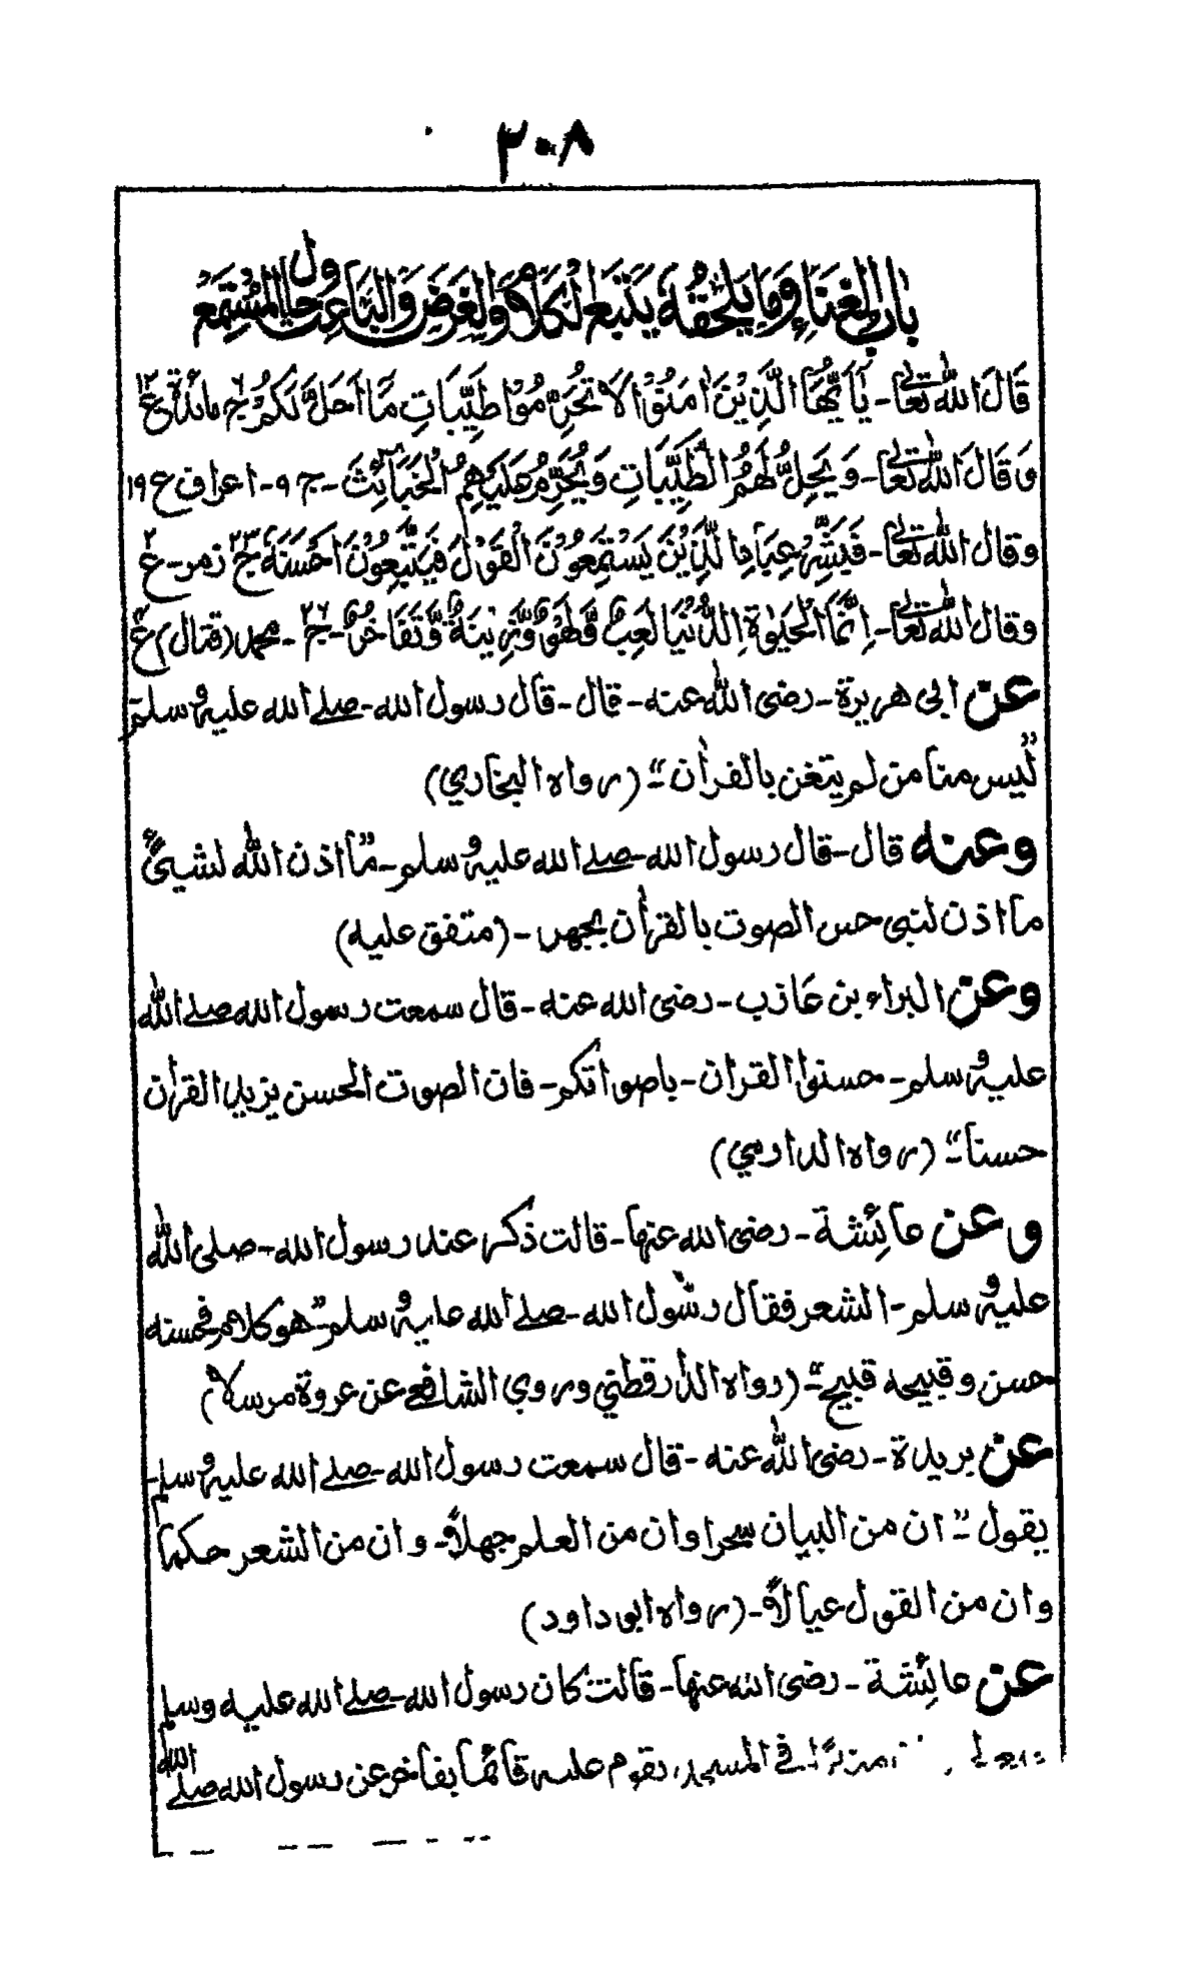 ٣٠٨
باب الغناء وما يلحقه يتبع الكلام والغرض والباعث وحال المستمع
قَالَ اللهُ تَعَالٰى- يٰۤاَيُّهَا الَّذِيْنَ اٰمَنُوْا لَا تُحَرِّمُوْا طَيِّبَاتِ مَاۤ اَحَلَّ لَكُمْ ج ٦ مائدة ع ١٢
وَقَالَ اللهُ تَعَالٰى- وَيُحِلُّ لَهُمُ الطَّيِّبَاتِ وَيُحَرِّمُ عَلَيْهِمُ الْخَبَائِثَ- ج ٩- اعراف ع ١٩
وقال الله تعالٰى- فَبَشِّرْ عِبَادِ الَّذِيْنَ يَسْتَمِعُوْنَ الْقَوْلَ فَيَتَّبِعُوْنَ اَحْسَنَهٗ ج ٢٣ زمر- ع ٢
وقال الله تعالٰى- اِنَّمَا الْحَيٰوةُ الدُّنْيَا لَعِبٌ وَّلَهْوٌ وَّزِيْنَةٌ وَّتَفَاخُرٌ- ج ٢٦- محمد (قتال) ع
عن ابى هريرة- رضى الله عنه- قال- قال رسول الله- صلے الله عليه وسلم
"ليس منا من لم يتغن بالقراٰن"- (رواه البخاري)
وعنه قال- قال رسول الله- صلے الله عليه وسلم- "مآ اذن الله لشيئ
مآ اذن لنبى حسن الصوت بالقراٰن يجهر- (متفق عليه)
وعن البراء بن عازب- رضى الله عنه- قال سمعت رسول الله صلے الله
عليه وسلم- حسنوا القران- باصواتكم- فان الصوت الحسن يزيد القراٰن
حسنا"- (رواه الدارمي)
وعن عائشة- رضى الله عنها- قالت ذكر عند رسول الله- صلى الله
عليه وسلم- الشعر فقال رسول الله- صلے الله عليه وسلم- "هو كلام فحسنه
حسن وقبيحه قبيح"- (رواه الدارقطني وروي الشافعے عن عروة مرسلا)
عن بريدة- رضى الله عنه- قال سمعت رسول الله- صلے الله عليه وسلم-
يقول "- ان من البيان سحرا وان من العلم جهلاً- وان من الشعر حكما
وان من القول عيالاً- (رواه ابو داود)
عن عائشة- رضى الله عنها- قالت كان رسول الله- صلے الله عليه وسلم
منبرًا فى المسجد، يقوم عليه قائما يفاخر عن رسول الله صلے الله